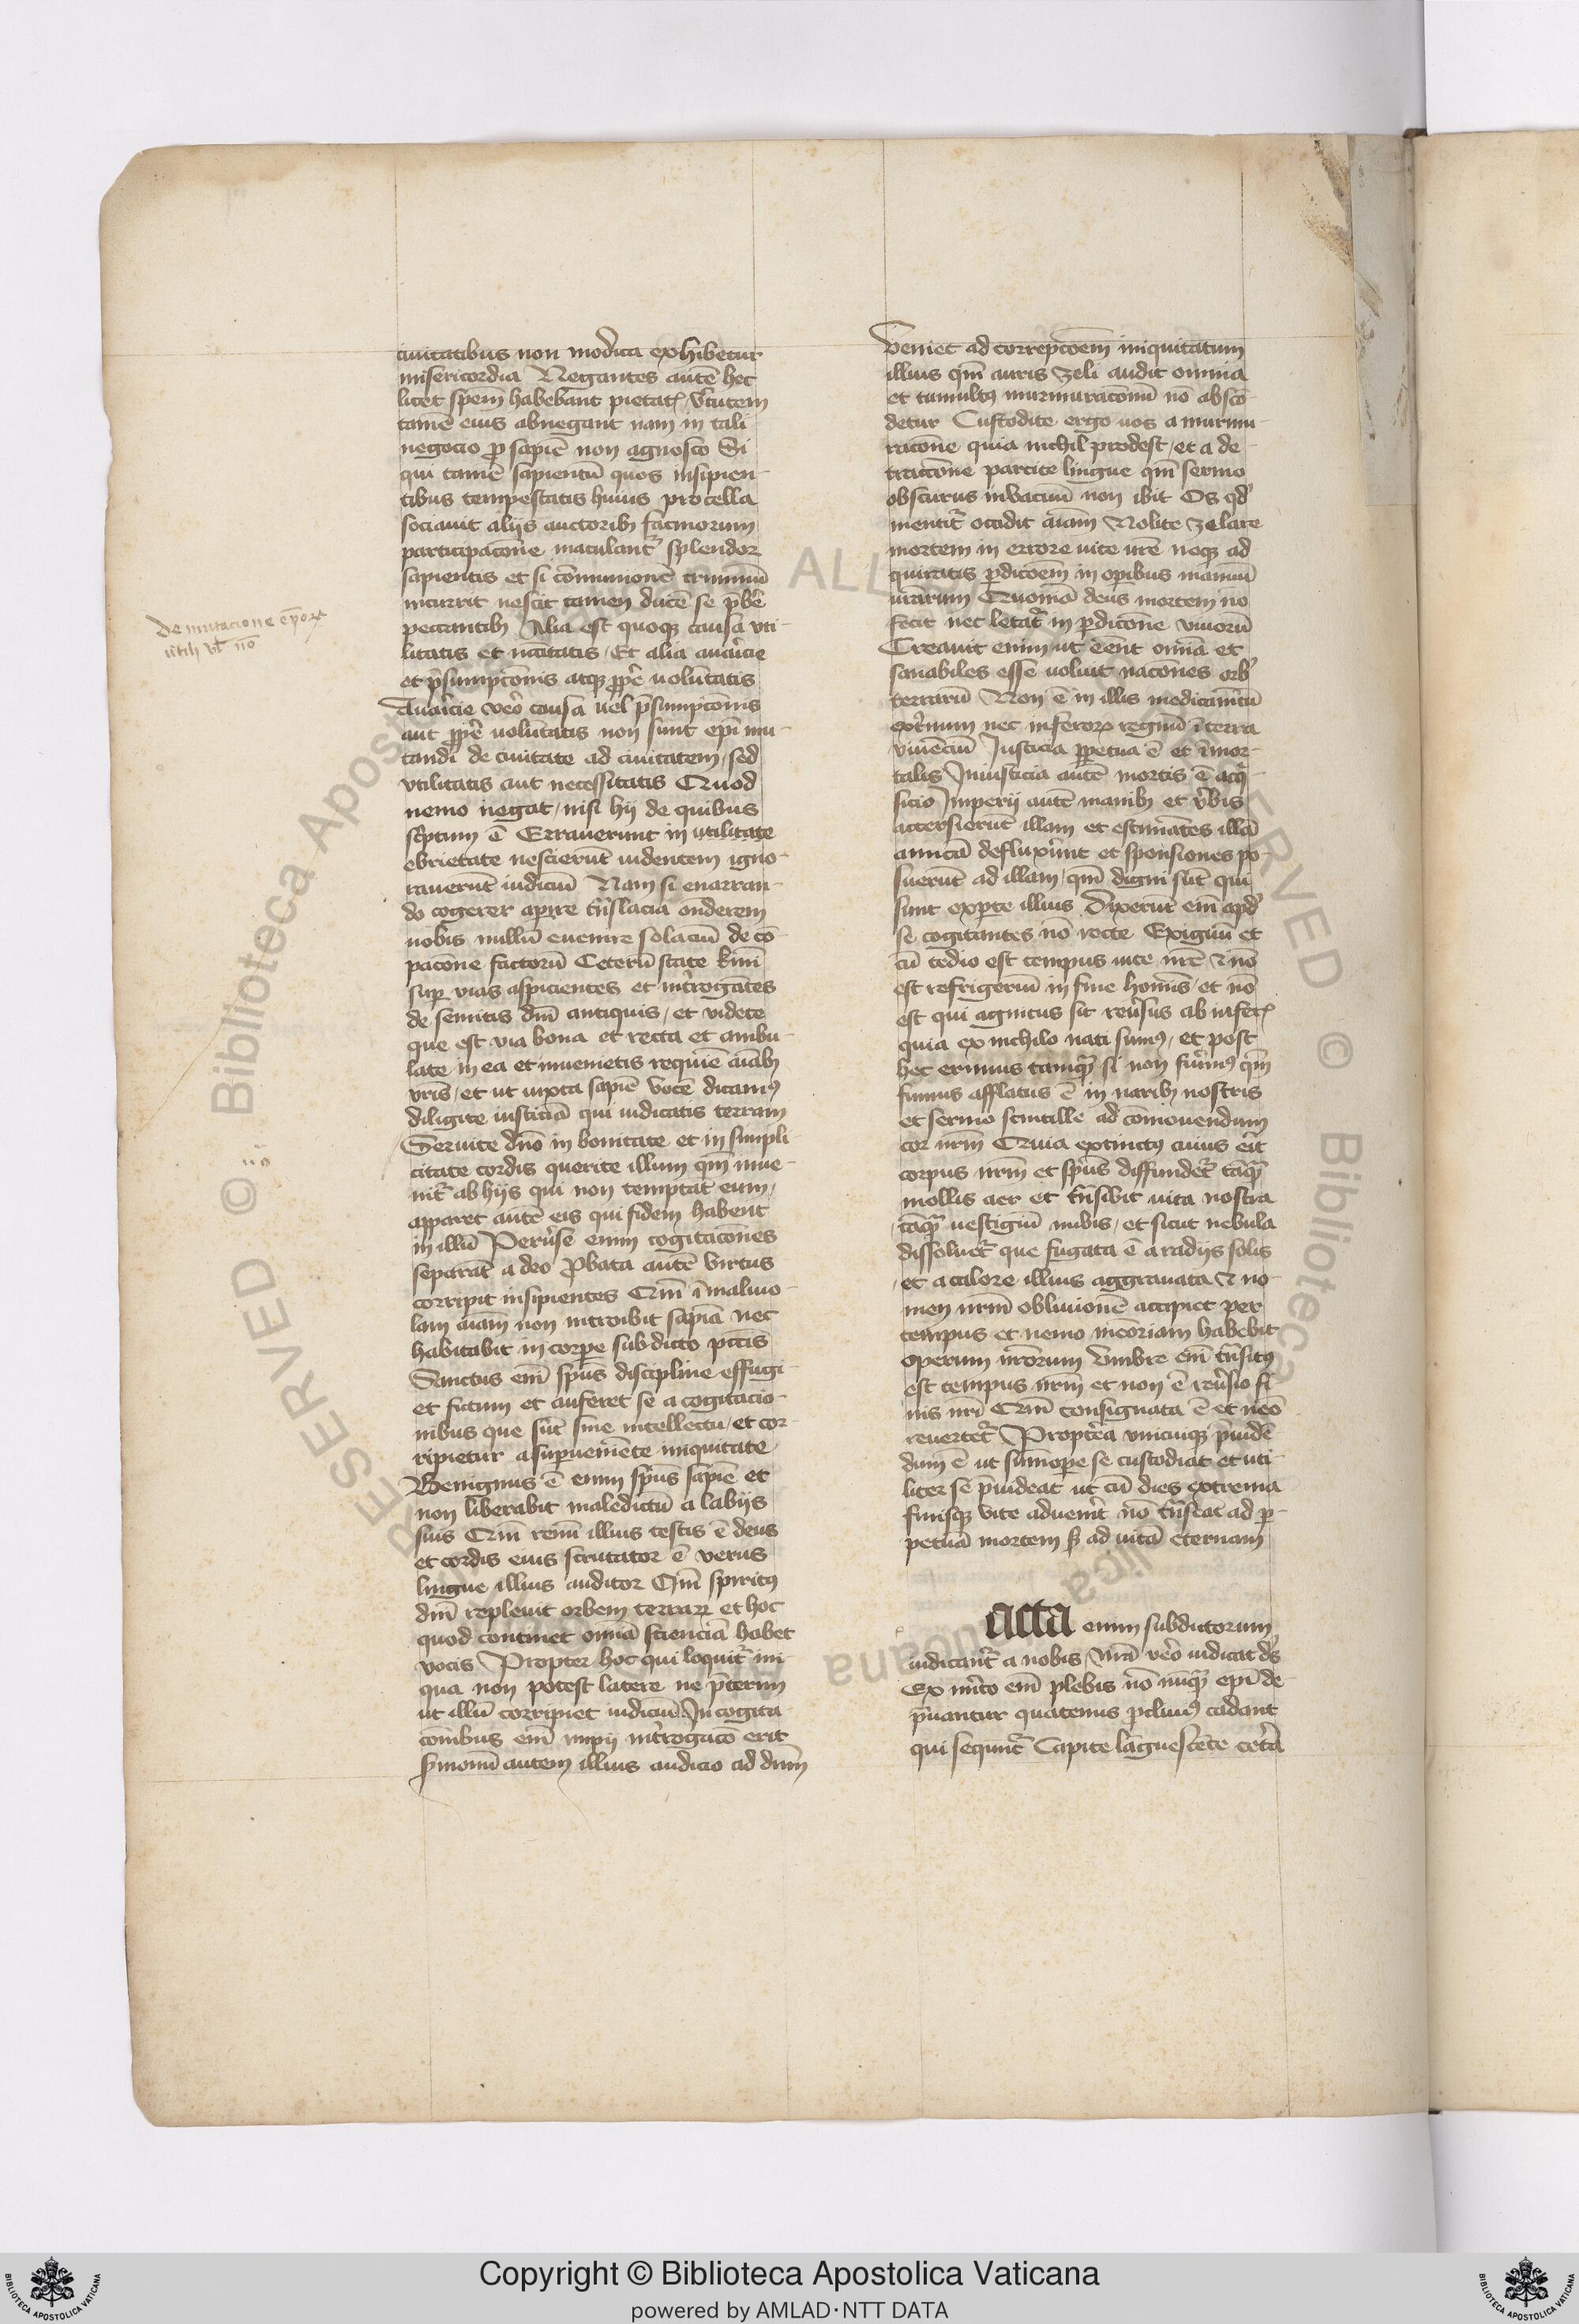 ciuitatibus non modica exhibetur
misericordia Negantes autē hec
licet spem habebant pietatꝭ v̉tutem
tamē eius abnegant nam in tali
negocio ꝓ sapiē non agnosco Si
qui tamē sapientū quos insipien-
tibus tempestatis huius procella
sociauit alijs auctoribꝫ facinorum
participacōne maculant᷑ splendor
sapientis et si cōmunionē criminū
incurrit nescit tamen ducē se p̄bē
peccantibꝫ Alia est quoqꝫ causa vti-
litatis et nc̄citatis Et alia auaricie
et p̄sumpcōnis atqꝫ ꝓp̄e uolūtatis
Auaricie vero causa uel p̄sumpcōnis
aut ꝓp̄e uolūtatis non sunt ep̄i mu-
tandi de ciuitate ad ciuitatem sed
vtilitatis aut necessitatis Quod
nemo negat nisi hij de quibus
sc̄ptum ē Errauerunt in utilitate
ebrietate nescierūt uidentem igno-
rauerūt iudiciū Nam si enarran-
do cogerer
nobis nullū euenire solaciū de cō-
pacōne factorū Ceterū state
sup̱ vias aspicientes et int̉rogātes
de semitis dn̄i antiquis et videte
que est via bona et recta et ambu-
late in ea et inuenietis requiē aīabꝫ
vris̄ et ut iuxta sapiē vocē dicamꝰ
diligite iusticiā qui iudicatis terram
Seruite dn̄o in bonitate et in simpli-
citate cordis querite illum qm̄ inue-
nit᷑ ab hijs qui non temptāt eum
apparet autē eis qui fidem habent
in illū Peru̓se enim cogitacōnes
separāt a deo Ꝓbata autē virtus
corripit insipientes Qm̄ ī maliuo-
lam aīam non introibit sapīa nec
habitabit in corpe subdicto pctīs
Sanctus em̄ sp̄us discipline effugi-
et fictum et auferet se a cogitacio-
nibus que sūt sine intellectu et cor-
ripietur a sup̱ueniēte iniquitate
Benignus ē enim sp̄us sapiē et
non liberabit maledictū a labijs
suis Qm̄ renū illius testis ē deus
et cordis eius scrutator ē verus
lingue illius auditor Qm̄ spiritꝰ
dn̄i repleuit orbem terraꝝ et hoc
quod continet omīa scienciā habet
vocis Propter hoc qui loquit᷑ ini
qua non potest latere ne p̄terim
ut illū corripiet iudiciū In cogita
cōnibus em̄ impij int̉rogacō erit
s̉monū autem illius audicio ad dn̄m
De mutacione ep̄oꝝ
utili vl̄ nō
Veniet ad correpcōem iniquitatum
illius qm̄ auris zeli audit omnia
et tumultꝰ murmuraconū nō abscō-
detur Custodite ergo uos a murmu-
racōne quia nichil prodest et a de-
traccōne parcite lingue qm̄ sermo
obscurus in vacuū non ibit Os qd̓
mentit᷑ occidit aīam Nolite zelare
mortem in errore uite ur̄e neqꝫ ad
quiratis p̱dicōem in op̱ibus manuū
urārum Quoniā deus mortem nō
fecit nec letat᷑ in p̱dicōne viuorū
Creauit enim ut eēnt omīa et
sanabiles esse uoluit nacōnes orb̓
terrarū Non ē in illis medicamētū
ext̓minum nec inferoꝝ regnū ī terra
viuenciū Iusticia p̱petua ē et īmor-
talis Iniusticia autē mortis ē acq̓-
sicio Imperij autē manibꝫ et v̉bis
accersierūt illam et estimātes illā
amicā defluxer̄unt et sponsiones po-
suerūt ad illam qm̄ digni sūt qui
sunt exp̱te illius Dixerūt em̄ apd̓
se cogitantes nō recte Exiguū et
cū tedio est tempus uite nr̄e ⁊ nō
est refrigeriū in fine homīs et nō
est qui agnitus sit reu̓sus ab inferꝭ
quia ex nichilo nati sumꝰ et post
hec erimus tamqᷓ si non fuerimꝰ qm̄
fumus afflatus ē in naribꝫ nostris
et sermo scintille ad cōmouendum
cor nr̄m Quia extinctꝰ cinis erit
corpus nr̄m et sp̄us diffundet᷑ tāqᷓ
mollis aer et trn̄sibit uita nostra
tāqᷓ uestigiū nubis et sicut nebula
dissoluet᷑ que fugata ē a radijs solis
et a calore illius aggrauata ⁊ no-
men nr̄m obliuionē accipiet per
tempus et nemo meōriam habebit
operum nrōrum Vmbre em̄ trn̄sitꝰ
est tempus nr̄m et non ē reu̓sio fi-
nis nr̄i Qm̄ consignata ē et nēō
reuertet᷑ Propterea vnicuiqꝫ p̄uidē-
dum ē ut sūmope se custodiat et uti-
liter se p̄uideat ut cū dies extrema
finisqꝫ vite aduenerit nō trn̄seat ad p̱-
petuā mortem sꝫ ad uitā eternam
Facta enim subditorum
iudicant᷑ a nobis nr̄a vero iudicat ds̄
Ex mer̄ito em̄ plebis nō nūqᷓ ep̄i de-
p̄uantur quatenus ꝓcliuiꝰ cadant
qui sequnt᷑ Capite languescēte cetera
Copyright © Biblioteca Apostolica Vaticana
powered by AMLAD·NTT DATA